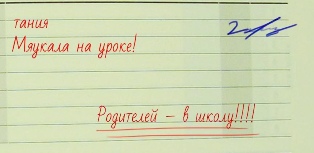 тания
Мяукала на уроке!
Родителей – в школу!!!!